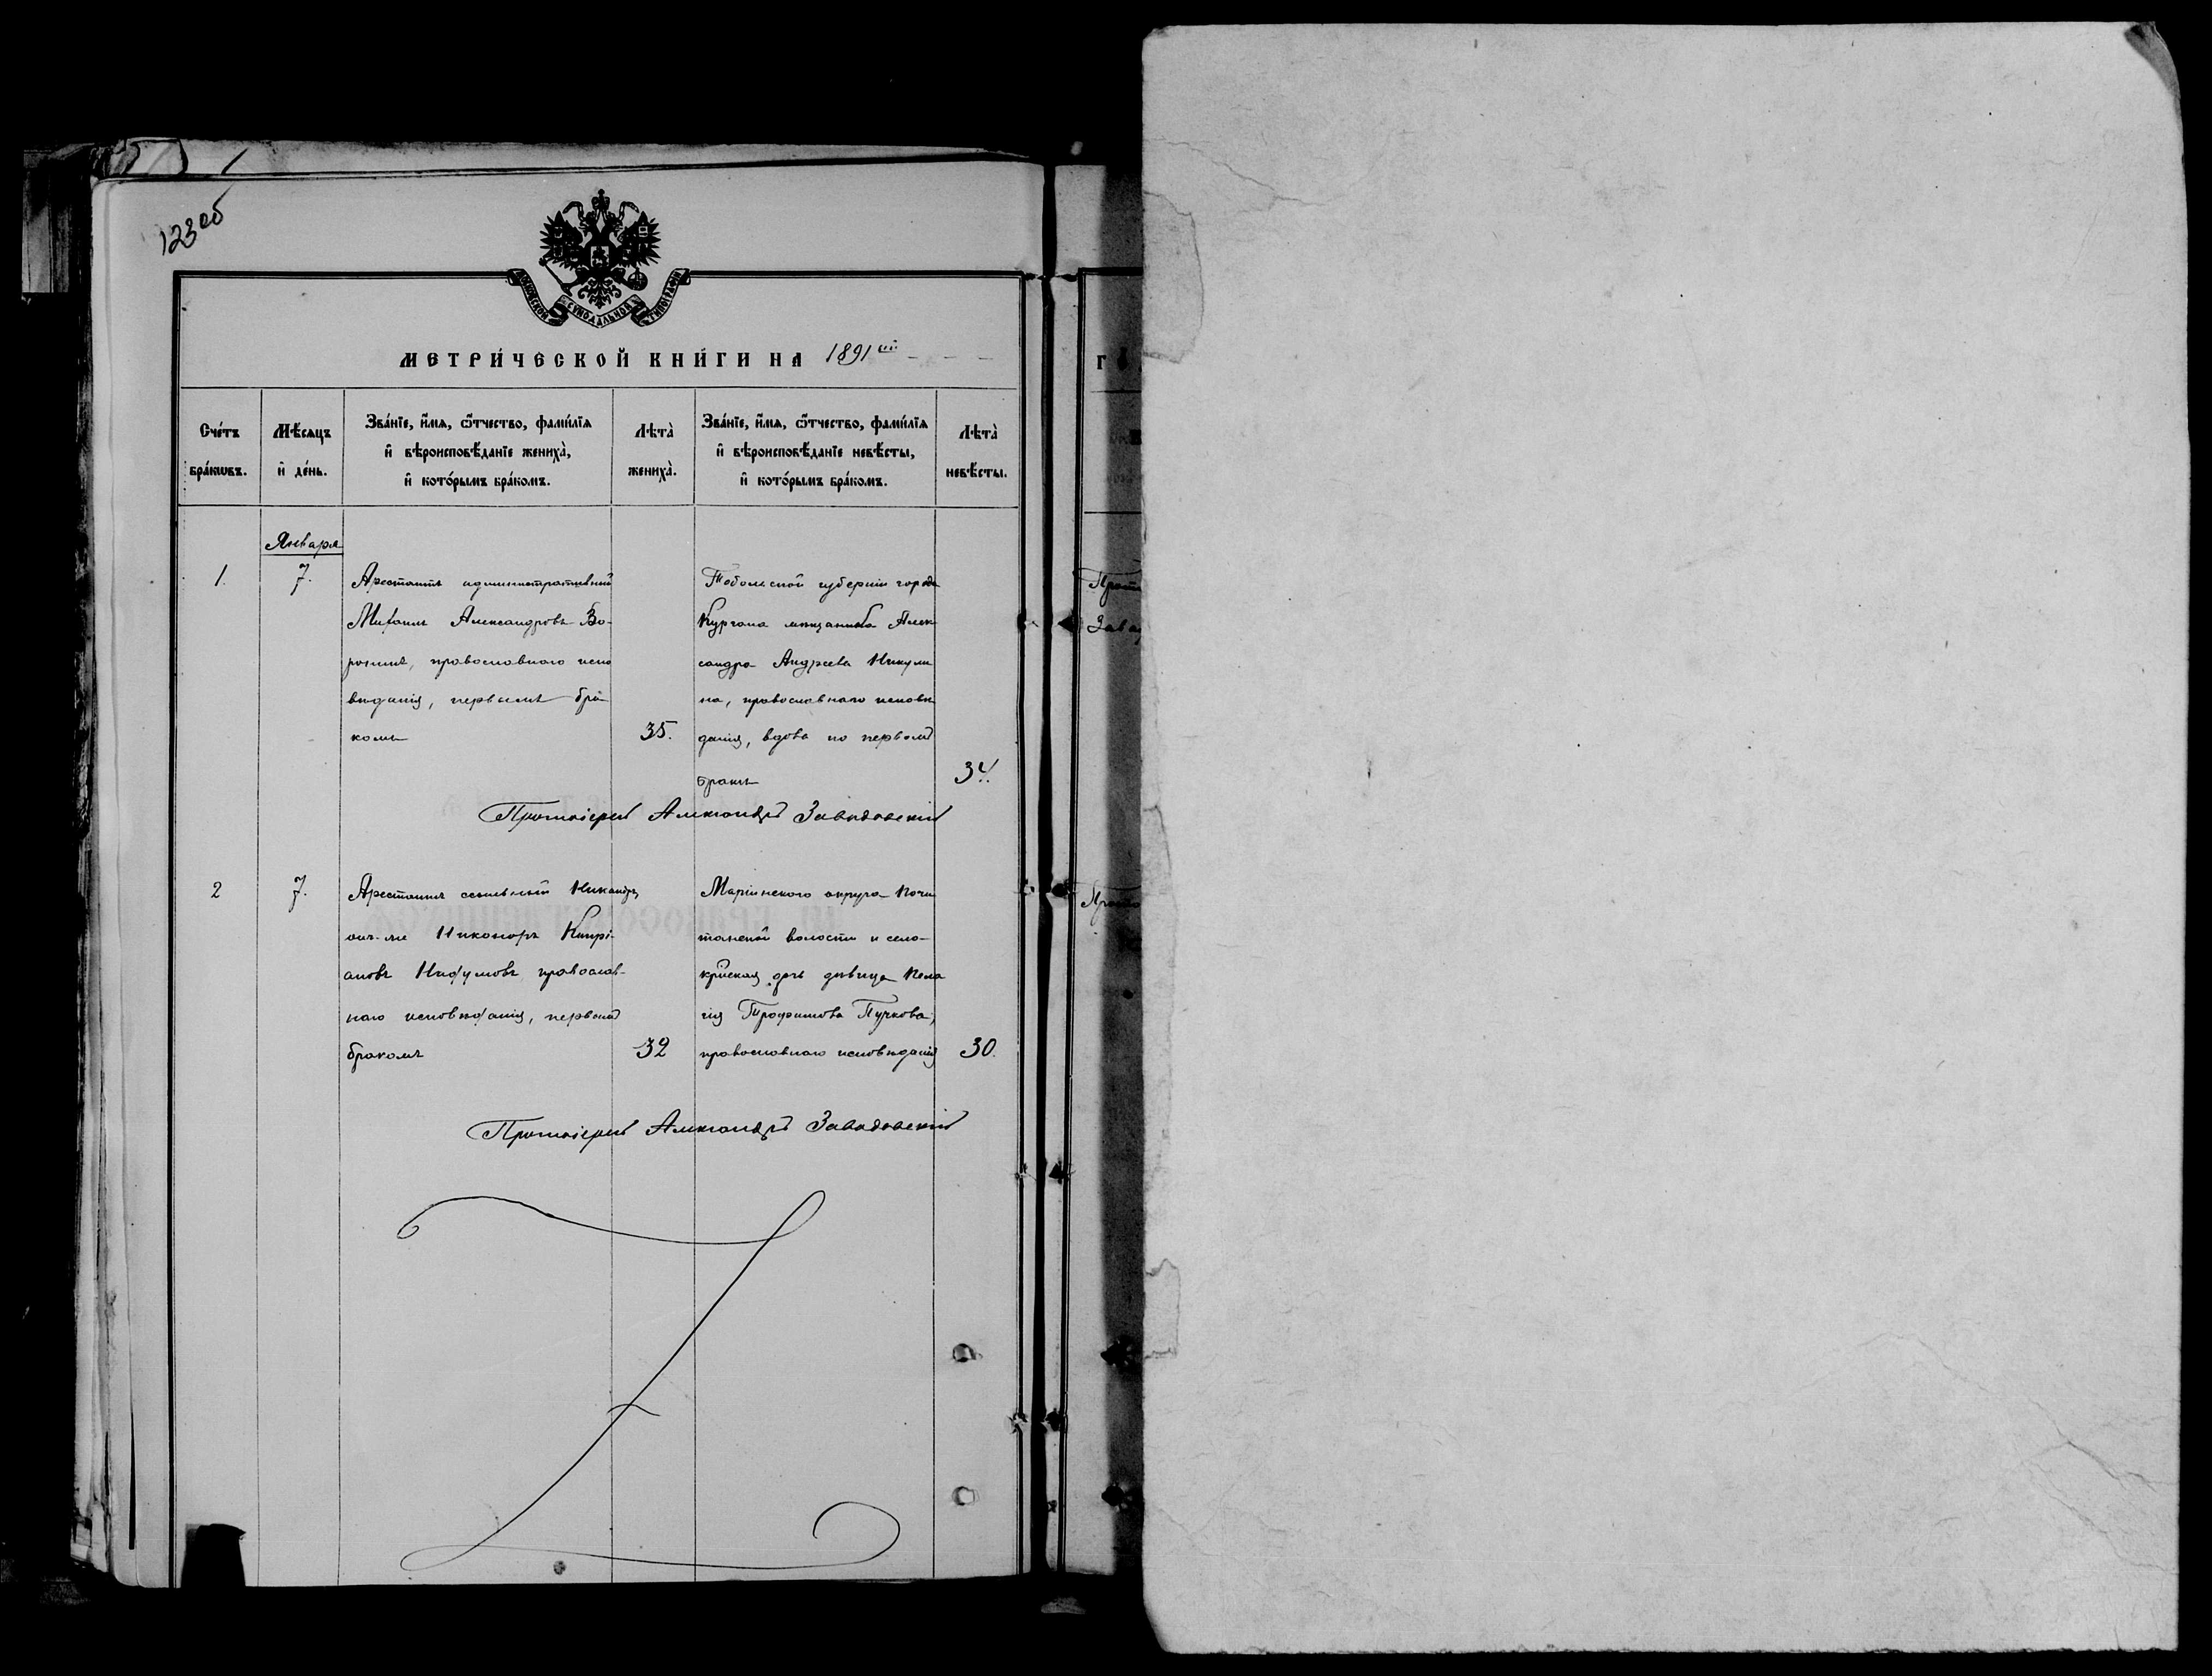 123 об
МОСКОВСКОЙ СѴНОДАЛЬНОЙ ТИПОГРАФІИ
МЕТРИ́ЧЕСКОЙ КНИ́ГИ НА 1891 ый
Сче́тъ бра́кѡвъ.
Мѣ́сяцъ и҆ де́нь.
Зва́нїе, и҆́мѧ, ѻ҆́тчество, фами́лїѧ
и҆ вѣроисповѣ́данїе жениха̀,
и҆ кото́рымъ бра́комъ.
Лѣта̀ жениха̀.
Зва́нїе, и҆́мѧ, ѻ҆́тчество, фами́лїѧ
и҆ вѣроисповѣ́данїе невѣ́сты,
и҆ кото́рымъ бра́комъ.
Лѣта̀ невѣ́сты.
Января
1.
7.
Арестантъ административный
Михаилъ Александровъ Во-
ронинъ, православнаго испо
вѣданія, первымъ бра
комъ
35.
Тобольской губерніи города
Кургана мѣщанка Алек
сандра Андреева Никули
на, православнаго исповѣ
данія, вдова по первомъ
бракѣ
34.
Протоіерей Александръ Заводовскій
2
7.
Арестантъ ссыльный Никандръ
онъ-же Никоноръ Кипрі-
ановъ Наумовъ, православ-
наго исповѣданія, первымъ
бракомъ
32
Маріинскаго округа Почи
танской волости и села
кр̃нская дочь дѣвица Пела
гія Трофимова Пучкова,
православнаго исповѣданія
30.
Протоіерей Александръ Заводовскій